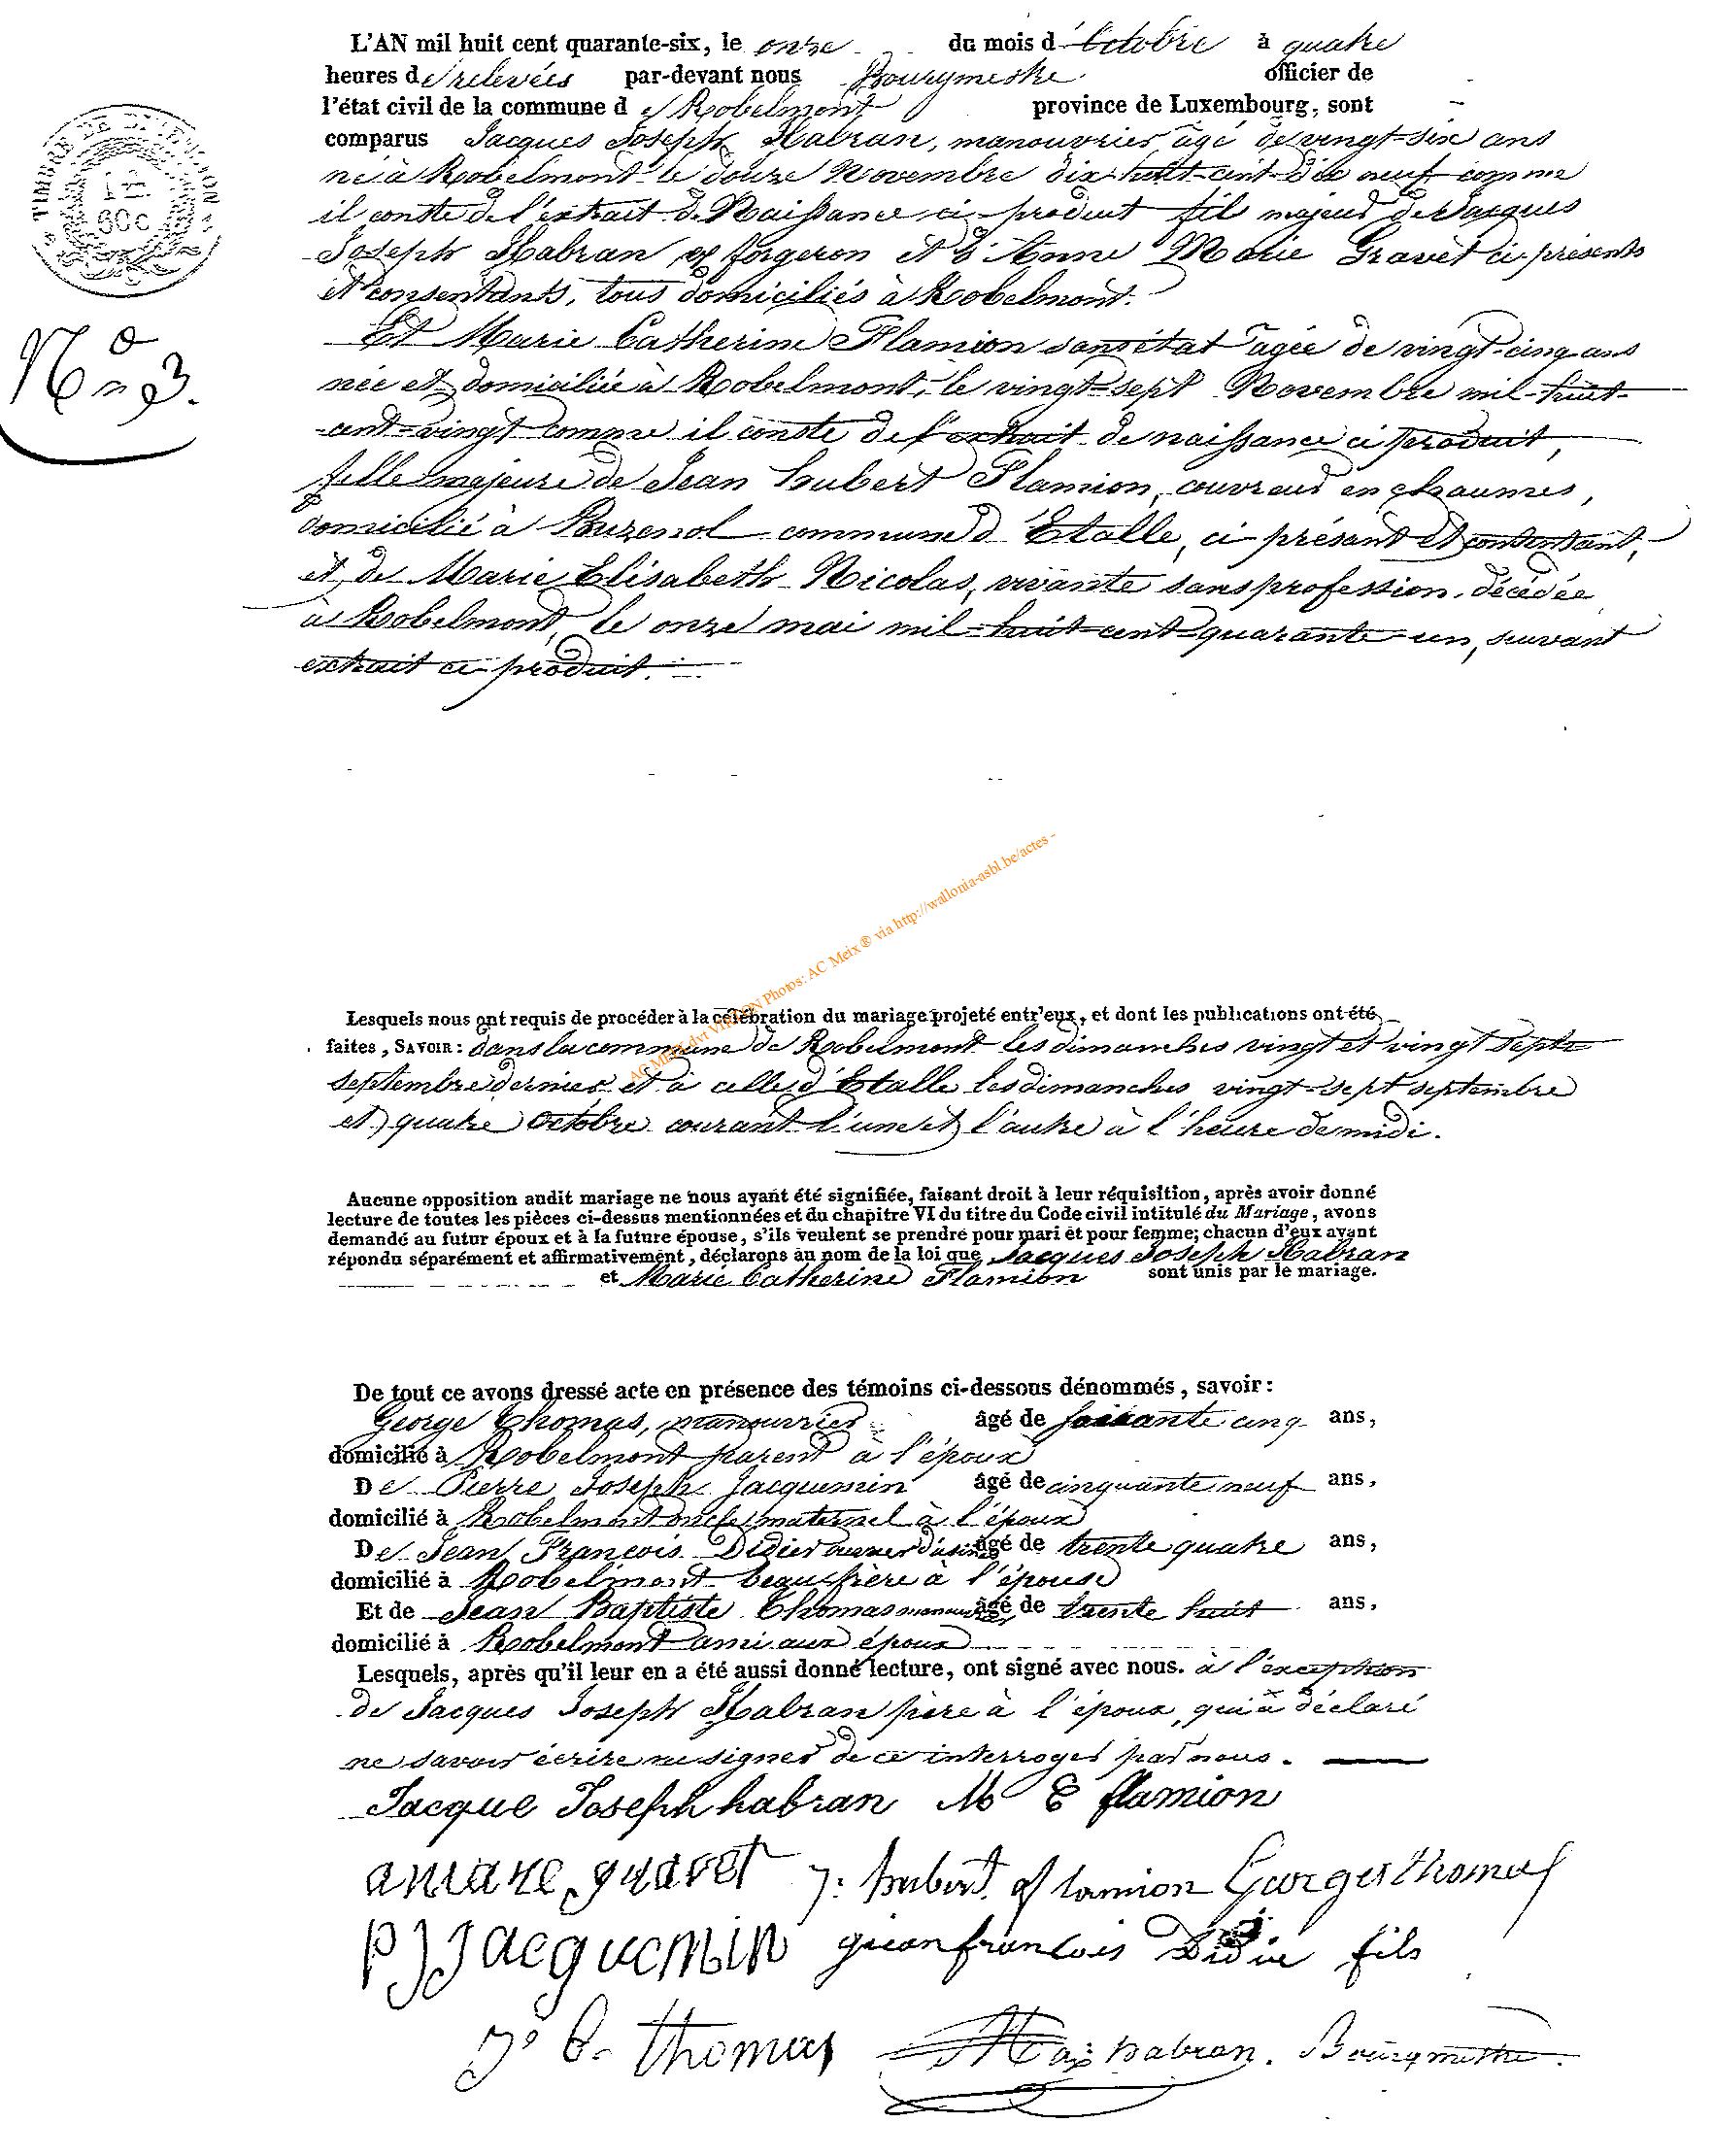 L'AN mil huit cent quarante-six, le onze du mois d'Octobre à quatre
heures de relevées par-devant nous Bourgmestre officier de
l'état civil de la commune de Robelmont province de Luxembourg, sont
comparus Jacques Joseph Habran, manouvrier, âgé de vingt-six ans
né à Robelmont le douze Novembre dix-huit-cent-dix neuf comme
il conste de l'extrait de Naissance ci-produit fils majeur de Jacques
Joseph Habran forgeron et d'Anne Marie Gravet ci-présents
et consentants, tous domiciliés à Robelmont.
TIMBRE DE DIMENSION
60c
No 3.
Et Marie Catherine Flamion sans état âgée de vingt-cinq ans
née et domiciliée à Robelmont, le vingt-sept Novembre mil-huit-
cent-vingt comme il conste de l'extrait de naissance ci produit,
fille majeure de Jean hubert Flamion, couvreur en chaumes,
domicilié à Buzenol commune d'Etalle, ci-présent et consentant,
et de Marie Elisabeth Nicolas, vivante sans profession, décédée
à Robelmont, le onze mai mil-huit-cent-quarante-un, suivant
extrait ci-produit.
AC MEIX-dvt VIRTON Photos: AC Meix ® via http://wallonia-asbl.be/actes -
Lesquels nous ont requis de procéder à la célébration du mariage projeté entr'eux, et dont les publications ont été
faites, SAVOIR: dans la commune de Robelmont les dimanches vingt et vingt sept
septembre dernier et à celle d'Etalle les dimanches vingt-sept septembre
et quatre Octobre courant l'une et l'autre à l'heure de midi.
Aucune opposition audit mariage ne nous ayant été signifiée, faisant droit à leur réquisition, après avoir donné
lecture de toutes les pièces ci-dessus mentionnées et du chapitre VI du titre du Code civil intitulé du Mariage, avons
demandé au futur époux et à la future épouse, s'ils veulent se prendre pour mari et pour femme; chacun d'eux ayant
répondu séparément et affirmativement, déclarons au nom de la loi que Jacques Joseph Habran
et Marie Catherine Flamion sont unis par le mariage.
De tout ce avons dressé acte en présence des témoins ci-dessous dénommés, savoir:
George Thomas, manouvrier âgé de soixante cinq ans,
domicilié à Robelmont parent à l'époux
De Pierre Joseph Jacquemin âgé de cinquante neuf ans,
domicilié à Robelmont oncle maternel à l'époux
De Jean François Didier ouvrier d'usine âgé de trente quatre ans,
domicilié à Robelmont beau-frère à l'épouse
Et de Jean Baptiste Thomas manouvrier âgé de trente huit ans,
domicilié à Robelmont ami aux époux
Lesquels, après qu'il leur en a été aussi donné lecture, ont signé avec nous. à l'exception
de Jacques Joseph Habran père à l'époux, qui a déclaré
ne savoir écrire ne signer de ce interroger par nous.
Jacque Joseph habran M C flamion
anmarie gravet j: hubert flamion Georges thomas
P J Jacquemin gianfrancois Didie fils
J. B. thomas habran. Bourgmestre.